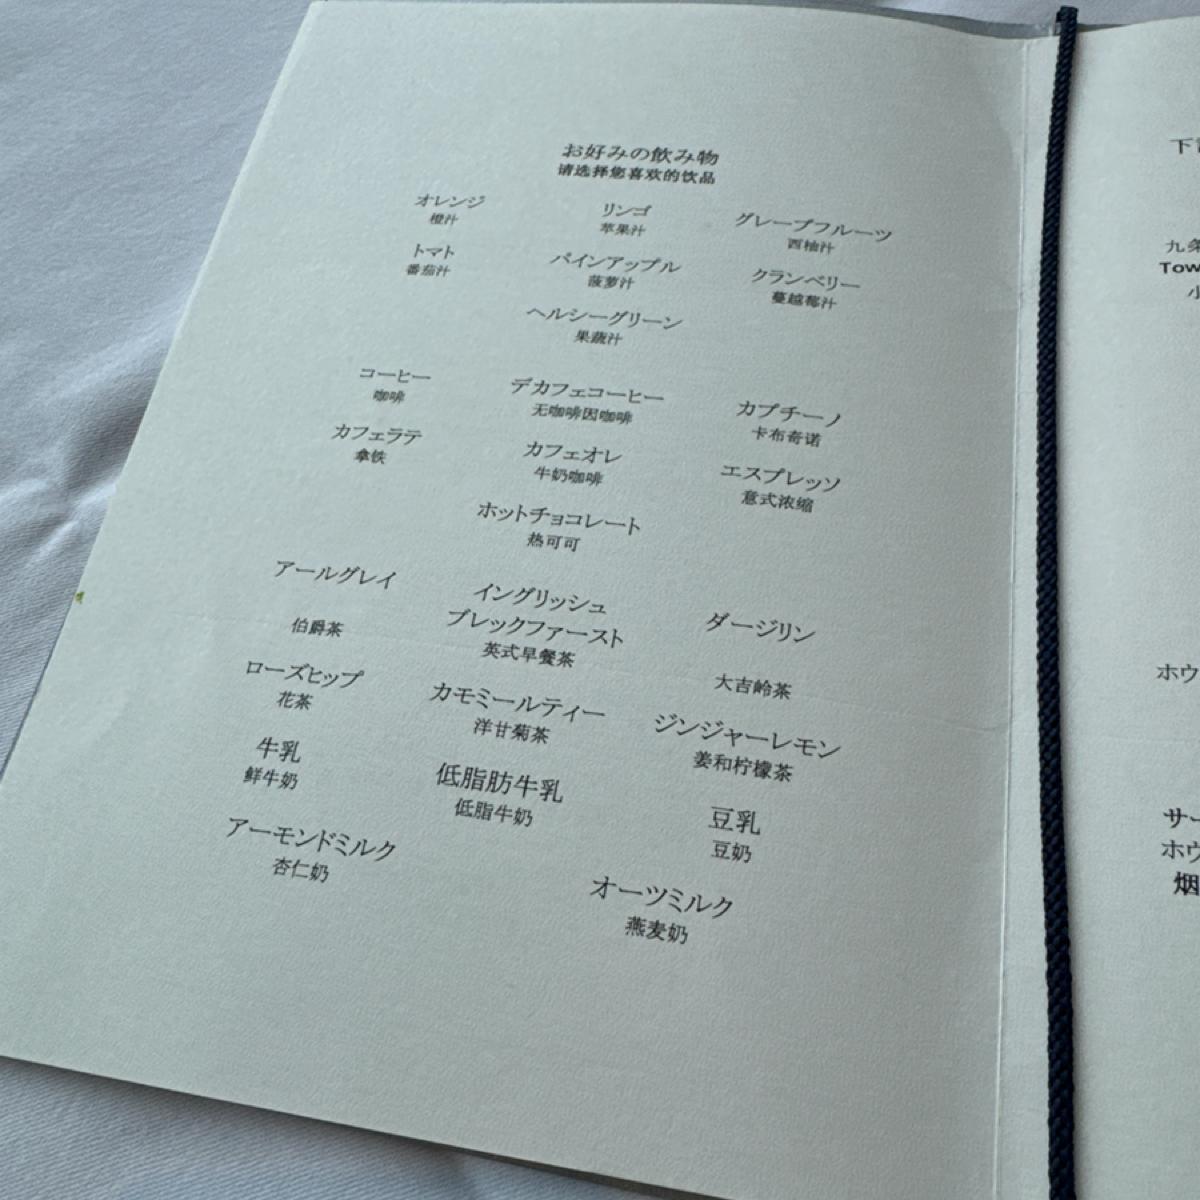 お好みの飲み物
请选择您喜欢的饮品
オレンジ リンゴ グレープフルーツ
橙汁 苹果汁 西柚汁
トマト パインアップル クランベリー
番茄汁 菠萝汁 蔓越莓汁
ヘルシーグリーン
果蔬汁
コーヒー デカフェコーヒー カプチーノ
咖啡 无咖啡因咖啡 卡布奇诺
カフェラテ カフェオレ エスプレッソ
拿铁 牛奶咖啡 意式浓缩
ホットチョコレート
热可可
アールグレイ イングリッシュ ダージリン
ブレックファースト
伯爵茶 英式早餐茶 大吉岭茶
ローズヒップ カモミールティー ジンジャーレモン
花茶 洋甘菊茶 姜和柠檬茶
牛乳 低脂肪牛乳 豆乳
鲜牛奶 低脂牛奶 豆奶
アーモンドミルク オーツミルク
杏仁奶 燕麦奶
下
九条
Tow
小
ホウ
サー
ホウ
烟